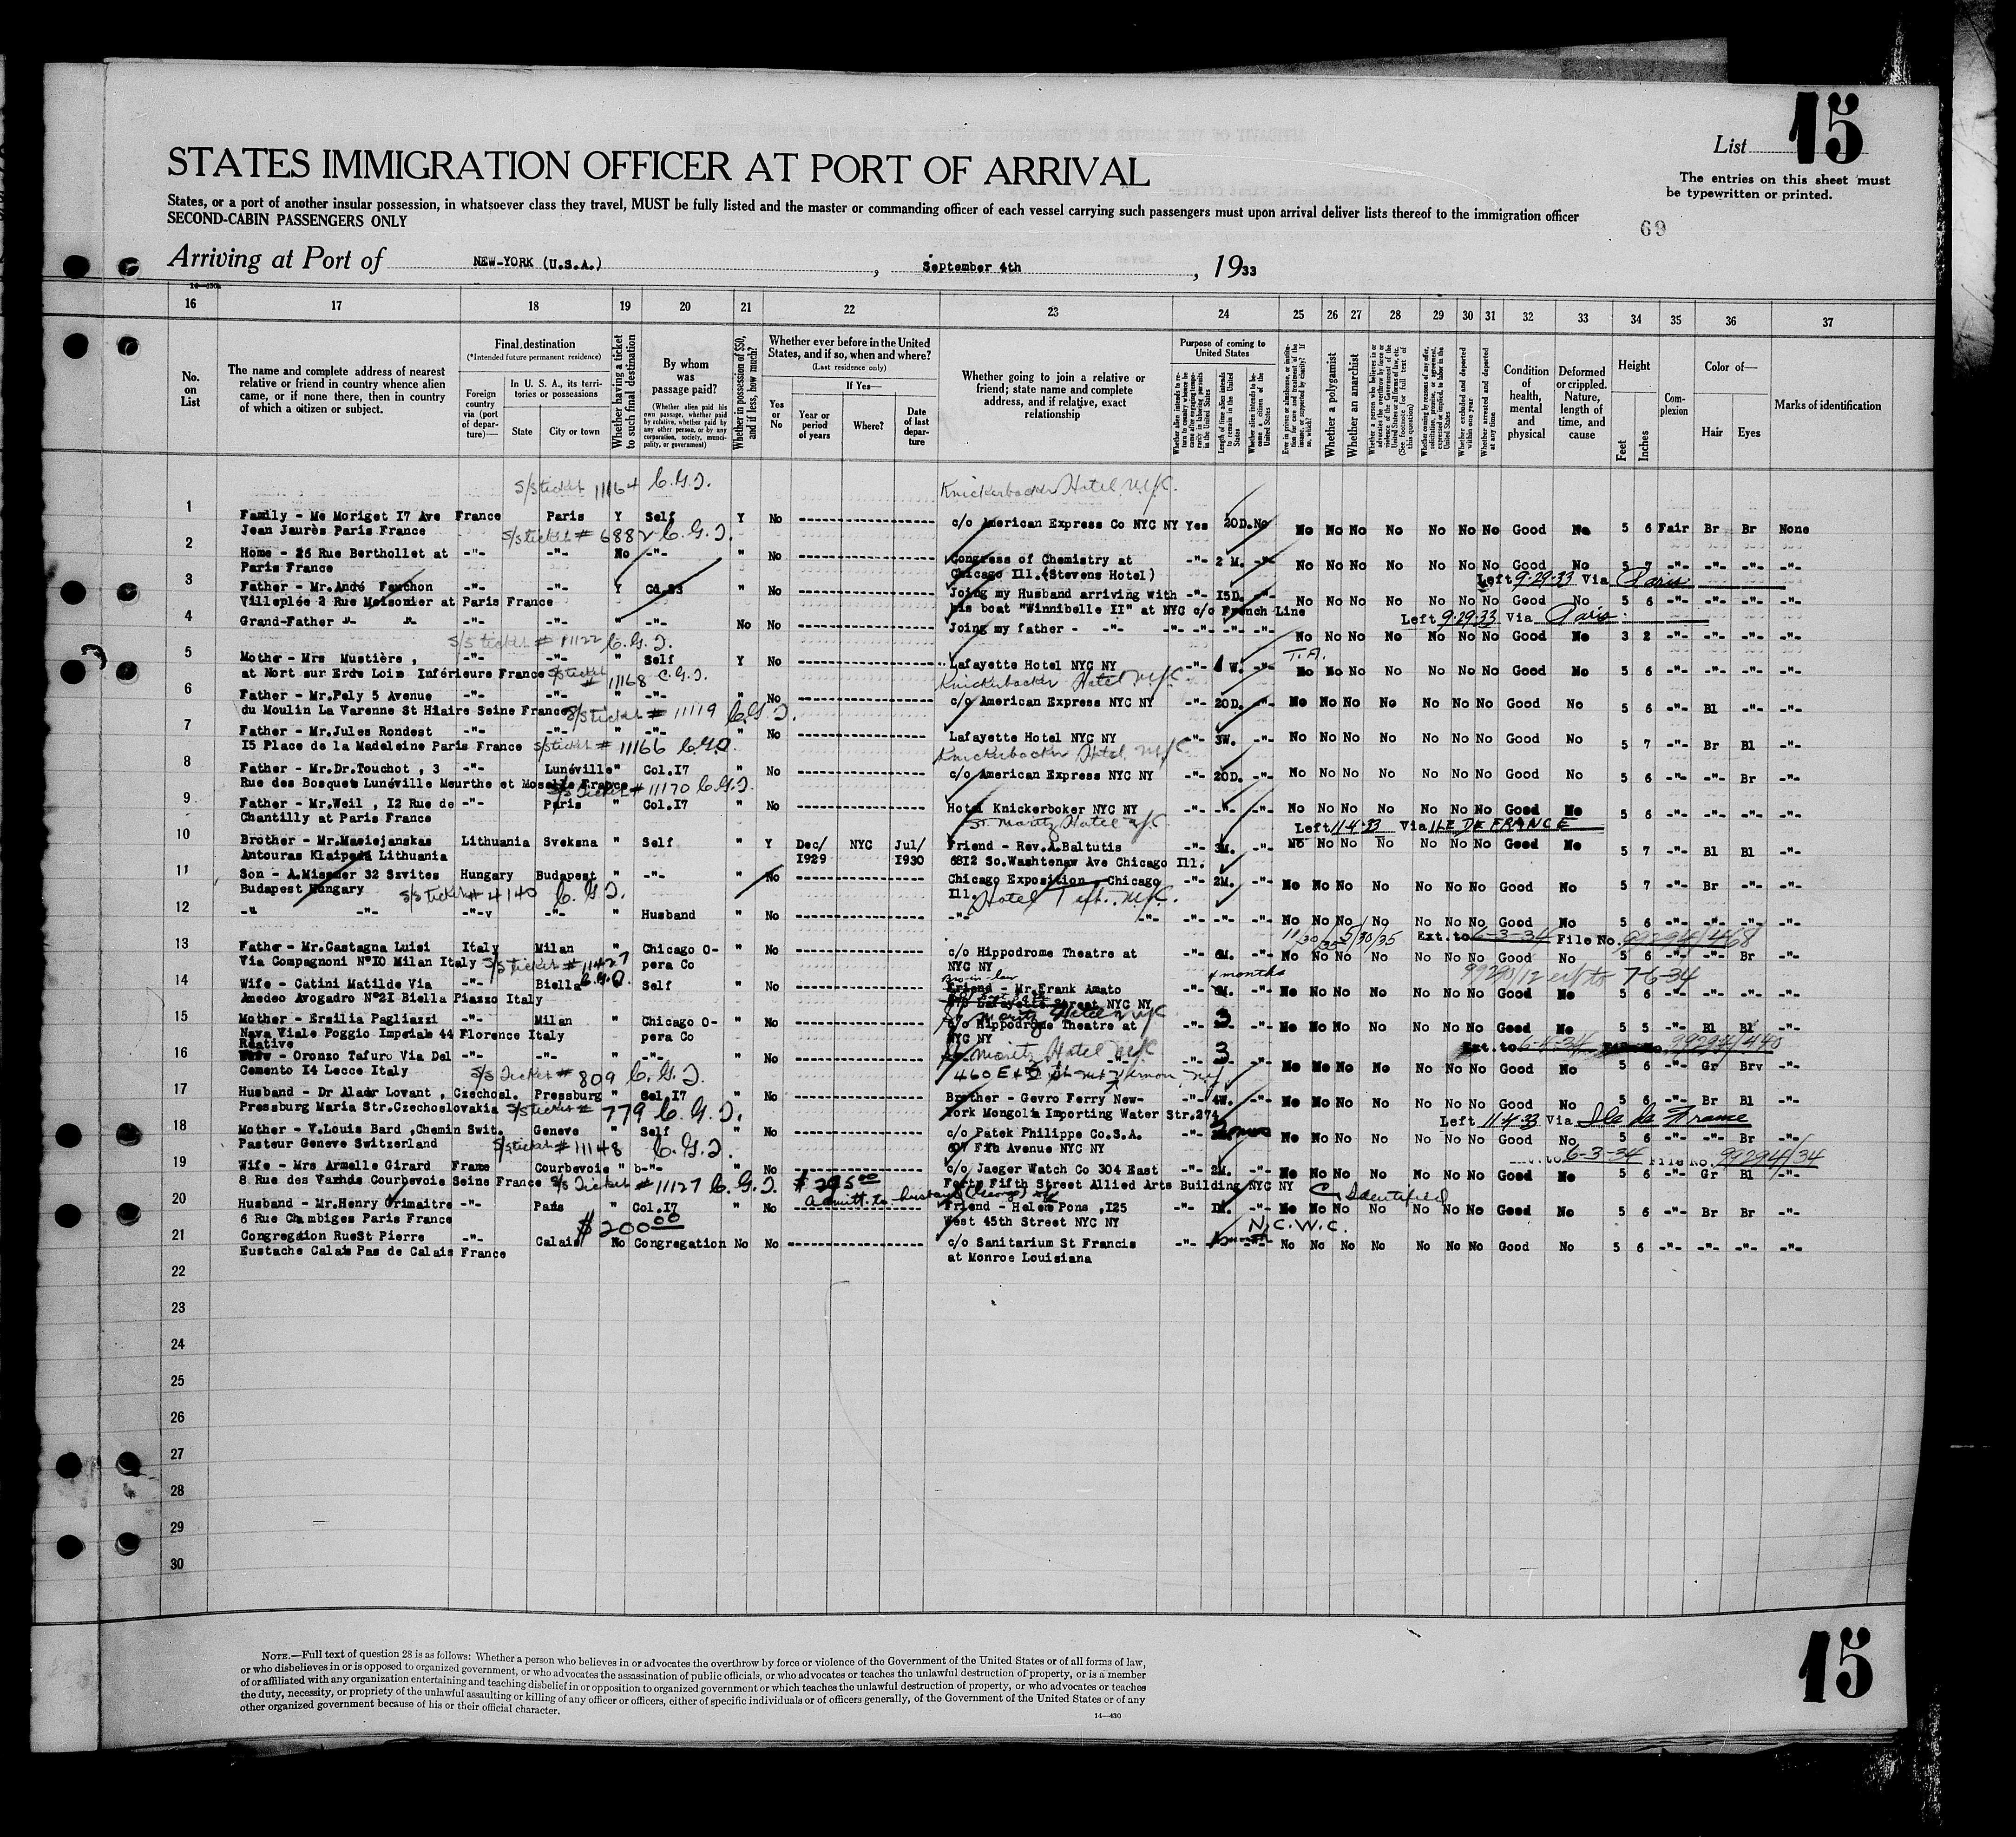 List 15
STATES IMMIGRATION OFFICER AT PORT OF ARRIVAL
The entries on this sheet must
be typewritten or printed.
States, or a port of another insular possession, in whatsoever class they travel, MUST be fully listed and the master or commanding officer of each vessel carrying such passengers must upon arrival deliver lists thereof to the immigration officer
SECOND-CABIN PASSENGERS ONLY
69
Arriving at Port of NEW-YORK (U.S.A.) , September 4th , 1933
14—430
16 17 18 19 20 21 22 23 24 25 26 27 28 29 30 31 32 33 34 35 36 37
No. on List
The name and complete address of nearest
relative or friend in country whence alien
came, or if none there, then in country
of which a citizen or subject.
Final destination
(*Intended future permanent residence)
Foreign country via (port of departure)—
In U. S. A., its territories or possessions
State City or town
Whether having a ticket to such final destination
By whom was passage paid?
(Whether alien paid his own passage, whether paid by relative, whether paid by any other person, or by any corporation, society, municipality, or government)
Whether in possession of $50, and if less, how much?
Whether ever before in the United
States, and if so, when and where?
(Last residence only)
Yes or No
If Yes—
Year or period of years
Where?
Date of last departure
Whether going to join a relative or
friend; state name and complete
address, and if relative, exact
relationship
Purpose of coming to United States
Length of time alien intends to remain in the United States
Whether alien intends to become a citizen of the United States
Whether a polygamist
Whether an anarchist
Whether excluded and deported within one year
Whether arrested and deported at any time
Condition of health, mental and physical
Deformed or crippled. Nature, length of time, and cause
Height
Feet Inches
Complexion
Color of—
Hair Eyes
Marks of identification
S/S ticket 11164 C.G.T. Knickerbocker Hotel N.Y.C.
1 Family - Me Moriget 17 Ave France Paris Y Self Y No c/o American Express Co NYC NY Yes 20D. No No No No No No No No Good No 5 6 Fair Br Br None
Jean Jaurès Paris France S/S ticket # 6882 C.G.T.
2 Home - 26 Rue Berthollet at -"- -"- No -"- " No Congress of Chemistry at -"- 2 M. -"- No No No No No No No Good No 5 7 -"- -"- -"- -"-
Paris France Chicago Ill. (Stevens Hotel) Left 9-29-33 Via Paris
3 Father - Mr.André Fauchon -"- -"- Y Cd.23 " No Joing my Husband arriving with -"- 15D. -"- No No No No No No No Good No 5 6 -"- -"- -"- -"-
Villeplée 2 Rue Meisonier at Paris France his boat "Winnibelle II" at NYC c/o French Line
4 Grand-Father -"- -"- -"- -"- " -"- No No Joing my father - -"- -"- -"- -"- No No No No No No No Good No 3 2 -"- -"- -"- -"-
Left 9-29-33 Via Paris
S/S ticket # 11122 C.G.T. T.A.
5 Mother - Mrs Mustière , -"- -"- " Self Y No Lafayette Hotel NYC NY -"- 1 W. -"- No No No No No No No Good No 5 6 -"- -"- -"- -"-
at Nort sur Erde Loire Inférieure France S/S ticket # 11168 C.G.T. Knickerbocker Hotel N.Y.C.
6 Father - Mr.Pely 5 Avenue -"- -"- " -"- " No c/o American Express NYC NY -"- 20D. -"- No No No No No No No Good No 5 6 -"- Bl -"- -"-
du Moulin La Varenne St Hlaire Seine France S/S ticket # 11119 C.G.T.
7 Father - Mr.Jules Rondest -"- -"- " -"- " No Lafayette Hotel NYC NY -"- 3W. -"- No No No No No No No Good No 5 7 -"- Br Bl -"-
15 Place de la Madeleine Paris France S/S ticket # 11166 C.G.T. Knickerbocker Hotel N.Y.C.
8 Father - Mr.Dr.Touchot , 3 -"- Lunéville " Col.17 " No c/o American Express NYC NY -"- 20D. -"- No No No No No No No Good No 5 6 -"- -"- Br -"-
Rue des Bosquets Lunéville Meurthe et Moselle France S/S Ticket # 11170 C.G.T.
9 Father - Mr.Weil , 12 Rue de -"- Paris " Col.17 " No Hotel Knickerboker NYC NY -"- -"- -"- No No No No No No No Good No 5 6 -"- -"- -"- -"-
Chantilly at Paris France St. Moritz Hotel N.Y.C. Left 11-4-33 Via ILE DE FRANCE
10 Brother - Mr.Masiejanskas Lithuania Sveksna " Self " Y Dec/ NYC Jul/ Friend - Rev.A.Baltutis 3M. -"- No No No No No No No Good No 5 7 -"- Bl Bl -"-
Antouras Klaipeda Lithuania 1929 1930 6812 So.Washtenaw Ave Chicago Ill.
11 Son - A.Missner 32 Szvites Hungary Budapest " -"- " No Chicago Exposition Chicago -"- 2M. -"- No No No No No No No Good No 5 7 -"- Br -"- -"-
Budapest Hungary S/S ticket # 4140 C.G.T. Ill. Hotel Taft. N.Y.C.
12 -"- -"- -"- -"- " Husband " No -"- -"- -"- -"- -"- No No No No No No No Good No 5 6 -"- -"- -"- -"-
11/30/35 5/30/35 Ext. to 6-3-34 File No. 99294/468
13 Father - Mr.Castagna Luisi Italy Milan " Chicago O- " No c/o Hippodrome Theatre at -"- 6M. -"- No No No No No No No Good No 5 6 -"- -"- Br -"-
Via Compagnoni N°10 Milan Italy S/S ticket # 11427 C.G.T. pera Co NYC NY
Bro-in-law 4 months 99290/12 ext to 7-6-34
14 Wife - Catini Matilde Via -"- Biella Self " No Friend - Mr.Frank Amato -"- 6M. -"- No No No No No No No Good No 5 6 -"- -"- -"- -"-
Amedeo Avogadro N°21 Biella Piazzo Italy Lafayette Street NYC NY
St Moritz Hotel NYC
15 Mother - Ersilia Pagliazzi -"- Milan " Chicago O- " No c/o Hippodrome Theatre at -"- 3 -"- No No No No No No No Good No 5 5 -"- Bl Bl -"-
Nova Viale Poggio Imperiale 44 Florence Italy pera Co NYC NY
Relative St Moritz Hotel NYC Ext. to 6-4-34 File No. 99294/440
16 Wife - Oronzo Tafuro Via Del -"- -"- " -"- " No 3 -"- No No No No No No No Good No 5 6 -"- Gr Brv -"-
Cemento 14 Lecce Italy S/S Ticket # 809 C.G.T. 460 E + 3 St Mt Vernon, NY
17 Husband - Dr Aladar Lovant , Czechosl. Pressburg " Col.17 " No Brother - Gevro Ferry New- -"- 4W. -"- No No No No No No No Good No 5 6 -"- Br Bl -"-
Pressburg Maria Str.Czechoslovakia S/S ticket # 779 C.G.T. York Mongolia Importing Water Str.274 Left 11-4-33 Via Ile de France
18 Mother - V.Louis Bard ,Chemin Swit. Geneve " Self " No c/o Patek Philippe Co.S.A. -"- -"- No No No No No No No Good No 5 6 -"- -"- Br -"-
Pasteur Geneve Switzerland S/S ticket # 11148 C.G.T. 607 Fith Avenue NYC NY Ext. to 6-3-34 File No. 99294/34
19 Wife - Mrs Armelle Girard France Courbevoie " b-"- " No c/o Jaeger Watch Co 304 East -"- 2M. -"- No No No No No No No Good No 5 6 -"- Gr Bl -"-
8 Rue des Varinds Courbevoie Seine France S/S Ticket # 11127 C.G.T. $295.00 Forty Fifth Street Allied Arts Building NYC NY Identified
Admitt. to husband (George)
20 Husband - Mr.Henry Grimaitre -"- Paris " Col.17 " No Friend - Helen Pons ,125 -"- 1M. -"- No No No No No No No Good No 5 6 -"- Br Br -"-
6 Rue Chambiges Paris France $200.00 West 45th Street NYC NY N.C.W.C.
21 Congregation RueSt Pierre -"- Calais No Congregation No No c/o Sanitarium St Francis -"- month -"- No No No No No No No Good No 5 6 -"- -"- -"- -"-
Eustache Calais Pas de Calais France at Monroe Louisiana
22
23
24
25
26
27
28
29
30
NOTE.—Full text of question 28 is as follows: Whether a person who believes in or advocates the overthrow by force or violence of the Government of the United States or of all forms of law,
or who disbelieves in or is opposed to organized government, or who advocates the assassination of public officials, or who advocates or teaches the unlawful destruction of property, or is a member
of or affiliated with any organization entertaining and teaching disbelief in or opposition to organized government or which teaches the unlawful destruction of property, or who advocates or teaches
the duty, necessity, or propriety of the unlawful assaulting or killing of any officer or officers, either of specific individuals or of officers generally, of the Government of the United States or of any
other organized government because of his or their official character.
14—430
15